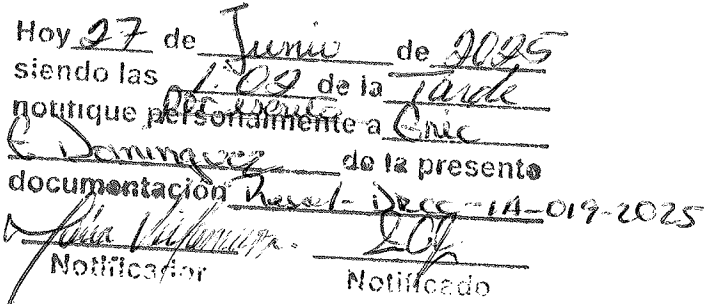 Hoy 27 de Junio de 2025
siendo las 1:02 de la Tarde
Por escrito
notifique personalmente a Eric
E Dominguez de la presente
documentación Resol-DRCC-IA-019-2025
Notificador Notificado